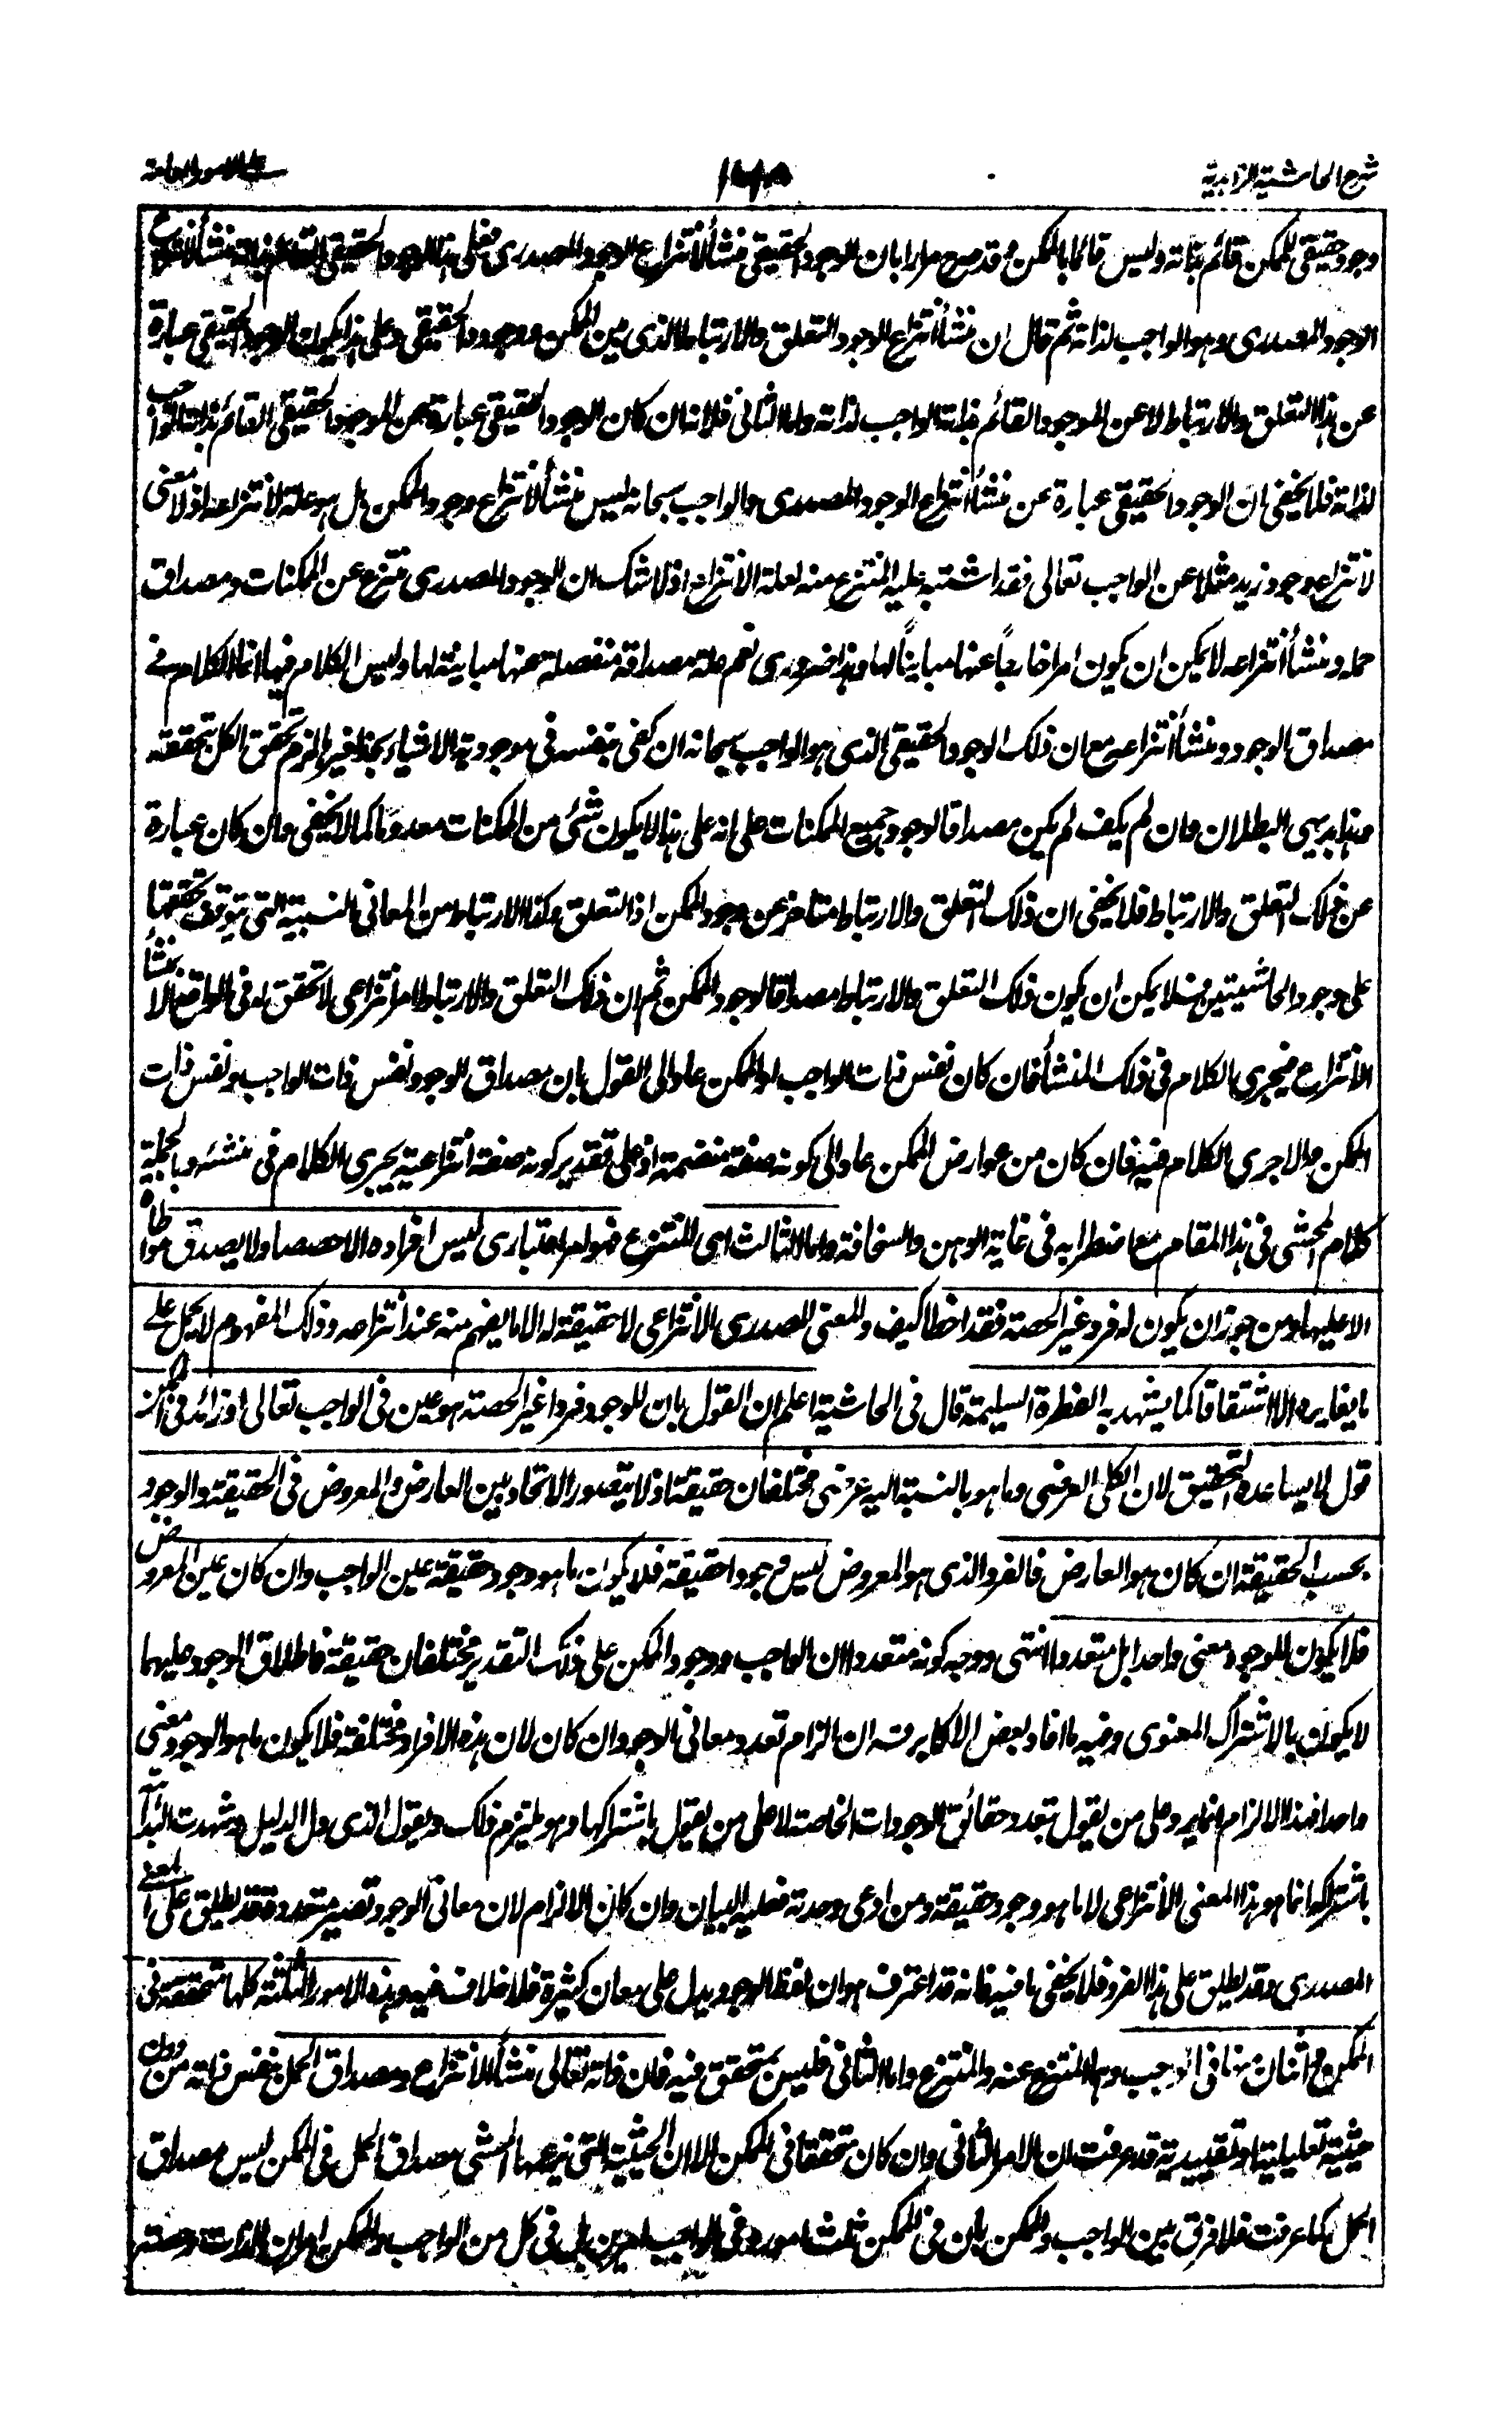 شرح الحاشية الزاهدية
على الامور العامة
وجود حقيقى للممكن قائم بذاته وليس قائما بالممكن وقد صرح مرارا بان الوجود الحقيقى منشأ لانتزاع الوجود المصدرى فعلى هذا الوجود الحقيقى القائم بذاته منشأ لانتزاع
الوجود المصدرى وهو الواجب لذاته ثم قال ان منشأ انتزاع الوجود التعلق والارتباط الذى بين الممكن ووجود الحقيقى وعلى هذا يكون الوجود الحقيقى عبارة
عن هذا التعلق والارتباط لا عن الموجود القائم بذاته الواجب لذاته واما الثانى فلانه ان كان الوجود الحقيقى عبارة عن الموجود الحقيقى القائم بذاته الواجب
لذاته فلا يخفى ان الوجود الحقيقى عبارة عن منشأ انتزاع الوجود المصدرى والواجب سبحانه ليس منشأ لانتزاع وجود الممكن بل هو علة لانتزاعه اذ لا معنى
لانتزاع وجود زيد مثلا عن الواجب تعالى فقد اشتبه عليه المنتزع منه لعلة الانتزاع اذ لا شك ان الوجود المصدرى منتزع عن الممكنات ومصداق
حمله ومنشأ انتزاعه لا يمكن ان يكون امرا خارجاً عنها مبايناً لها وهذا ضرورى نعم علة مصداقه منفصلة عنها مباينة لها وليس الكلام فيها انما الكلام فے
مصداق الوجود ومنشأ انتزاعه مع ان ذلك الوجود الحقيقى الذى هو الواجب سبحانه ان كفى بنفسه فى موجودية الاشياء بحذافيرها لزم تحقق الكل بتحققه
وهذا بديهى البطلان وان لم يكف لم يكن مصداقا لوجود جميع الممكنات على انه على هذا لا يكون شئ من الممكنات معدوما كما لا يخفى وان كان عبارة
عن ذلك التعلق والارتباط فلا يخفى ان ذلك التعلق والارتباط متأخر عن وجود الممكن اذ التعلق وكذا الارتباط من المعانى النسبية التى يتوقف تحققها
على وجود الحاشيتين فلا يمكن ان يكون ذلك التعلق والارتباط مصداقا لوجود الممكن ثم ان ذلك التعلق والارتباط امر انتزاعى لا تحقق له فى الواقع الا بمنشأ
الانتزاع فيجرى الكلام فى ذلك المنشأ فان كان نفس ذات الواجب او الممكن عاد الى القول بان مصداق الوجود نفس ذات الواجب ونفس ذات
الممكن والا جرى الكلام فيه فان كان من عوارض الممكن عاد الى كونه صفة منضمة اذ على تقدير كونه صفة انتزاعية يجرى الكلام فى منشئه وبالجملة
كلام المحشى فى هذا المقام مع اضطرابه فى غاية الوهن والسخافة واما الثالث اى المنتزع فهو امر اعتبارى ليس افراده الا حصصا ولا يصدق مواطاة
الا عليها ومن جوز ان يكون له فرد غير الحصة فقد اخطأ كيف والمعنى المصدرى الانتزاعى لا حقيقة له الا ما يفهم منه عند انتزاعه وذلك المفهوم لا يحمل على
ما يغايره الا اشتقاقا كما يشهد به الفطرة السليمة قال فى الحاشية اعلم ان القول بان للوجود فردا غير الحصة هو عين فى الواجب تعالى او زائد فى الممكن
قول لا يساعده التحقيق لان الكلى العرضى وما هو بالنسبة اليه عرضى مختلفان حقيقة اذ لا يتصور الاتحاد بين العارض والمعروض فى الحقيقة والوجود
بحسب الحقيقة ان كان هو العارض فالفرد الذى هو المعروض ليس وجودا حقيقة فلا يكون ما هو وجود حقيقة عين الواجب وان كان عين المعروض
فلا يكون للوجود معنى واحدا بل متعددا انتهى ووجه كونه متعددا ان الواجب ووجود الممكن على ذلك التقدير مختلفان حقيقة فاطلاق الوجود عليهما
لا يكون بالاشتراك المعنوى وفيه ما افاد بعض الاكابر قده ان الزام تعدد معانى الوجود ان كان لان هذه الافراد مختلفة فلا يكون ما هو الوجود معنى
واحدا فهذا الالزام انما يرد على من يقول بتعدد حقائق الوجودات الخاصة لا على من يقول باشتراكها وهو يلتزم ذلك ويقول الذى دل الدليل وشهدت البداهة
باشتراكه انما هو هذا المعنى الانتزاعى لا ما هو وجود حقيقة ومن ادعى وحدته فعليه البيان وان كان الالزام لان معانى الوجود تصير متعددة فقد يطلق على المعنى
المصدرى وقد يطلق على هذا الفرد فلا يخفى ما فيه فانه قد اعترف هو ان لفظ الوجود يدل على معان كثيرة فلا خلاف فيه وهذه الامور الثلثة كلها متحققة فى
الممكن واثنان منها فى الواجب وهما المنتزع عنه والمنتزع واما الثانى فليس بمتحقق فيه فان ذاته تعالى منشأ الانتزاع ومصداق الحمل بنفس ذاته من دون
حيثية تعليلية او تقييدية قد عرفت ان الامر الثانى وان كان متحققا فى الممكن الا ان الحيثية التى زعمها المحشى مصداق الحمل فى الممكن ليس مصداق
الحمل كما عرفت فلا فرق بين الواجب والممكن بان فى الممكن ثلث امور وفى الواجب امرين بل فى كل من الواجب والممكن امران الذات وحصة